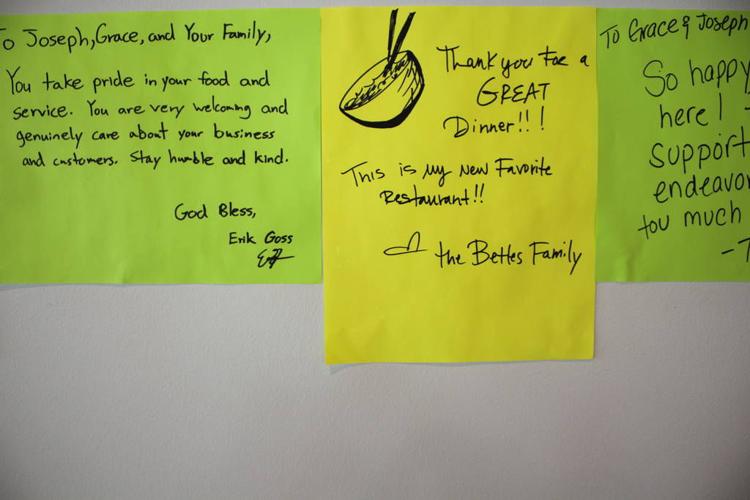 To Joseph, Grace, and Your Family,
You take pride in your food and
service. You are very welcoming and
genuinely care about your business
and customers. Stay humble and kind.
God Bless,
Erik Goss
Thank you for a
GREAT
Dinner!!!
This is my new Favorite
Restaurant!!
the Bettes Family
To Grace & Joseph
So happy
here!
support
endeavor
tou much